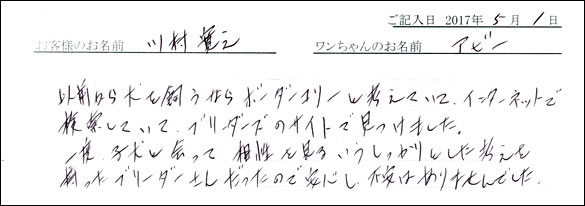 ご記入日 2017年 5月 1日
お客様のお名前 川村 寛之 ワンちゃんのお名前 アビー
以前から犬を飼うならボーダーコリーと考えていて、インターネットで
検索していて、ブリーダーズのサイトで見つけました。
一度、子犬と会って 相性を見るというしっかりとした考えを
持ったブリーダーさんだったので安心し、不安はありませんでした。